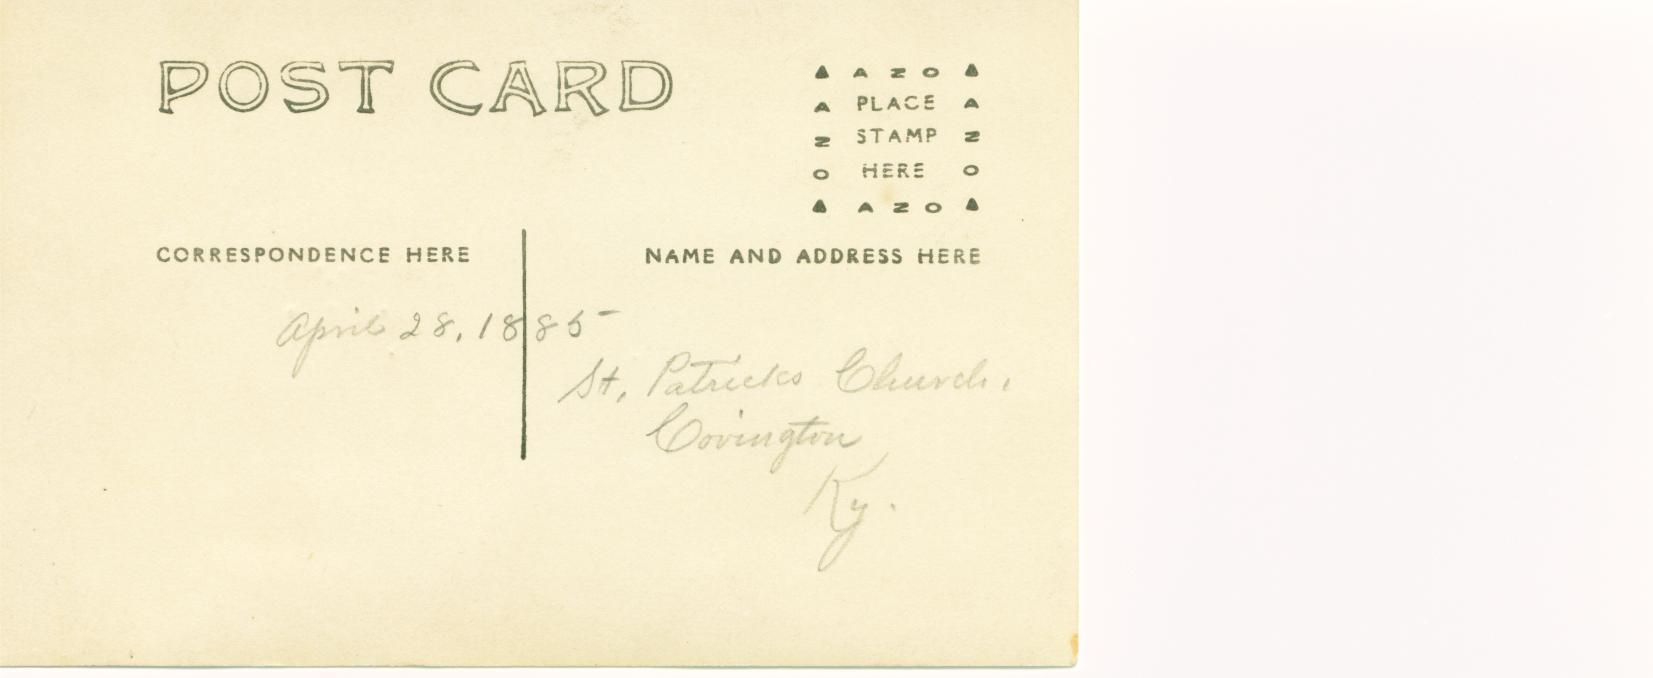 POST CARD
▲ A Z O ▲
A PLACE A
Z STAMP Z
O HERE O
▲ A Z O ▲
CORRESPONDENCE HERE
NAME AND ADDRESS HERE
April 28, 1885
St. Patricks Church,
Covington
Ky.